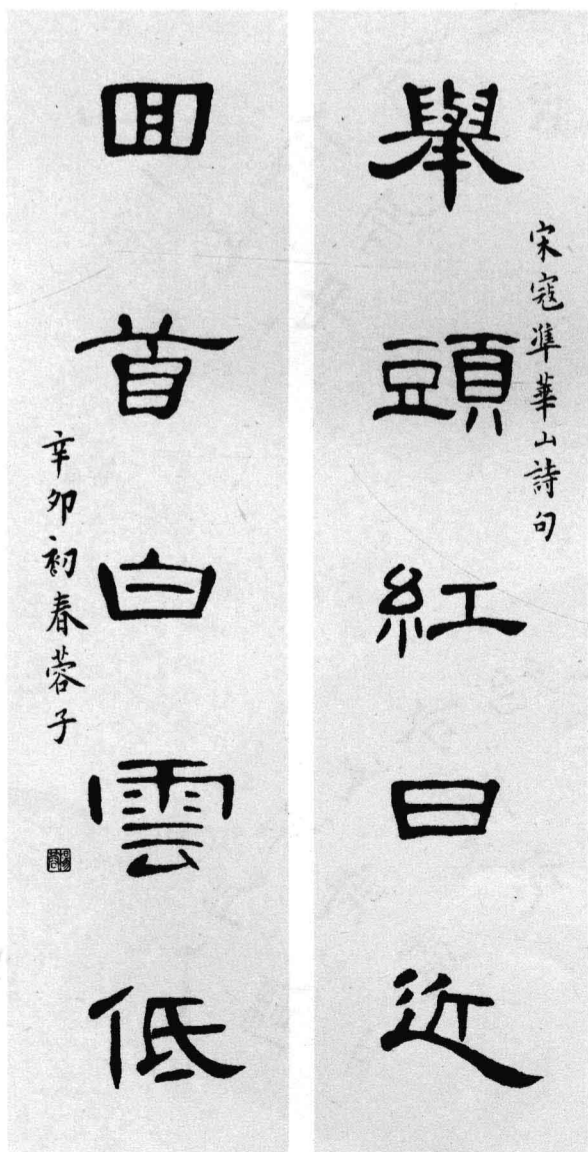 舉頭紅日近
宋寇準華山詩句
囬首白雲低
辛卯初春蓉子